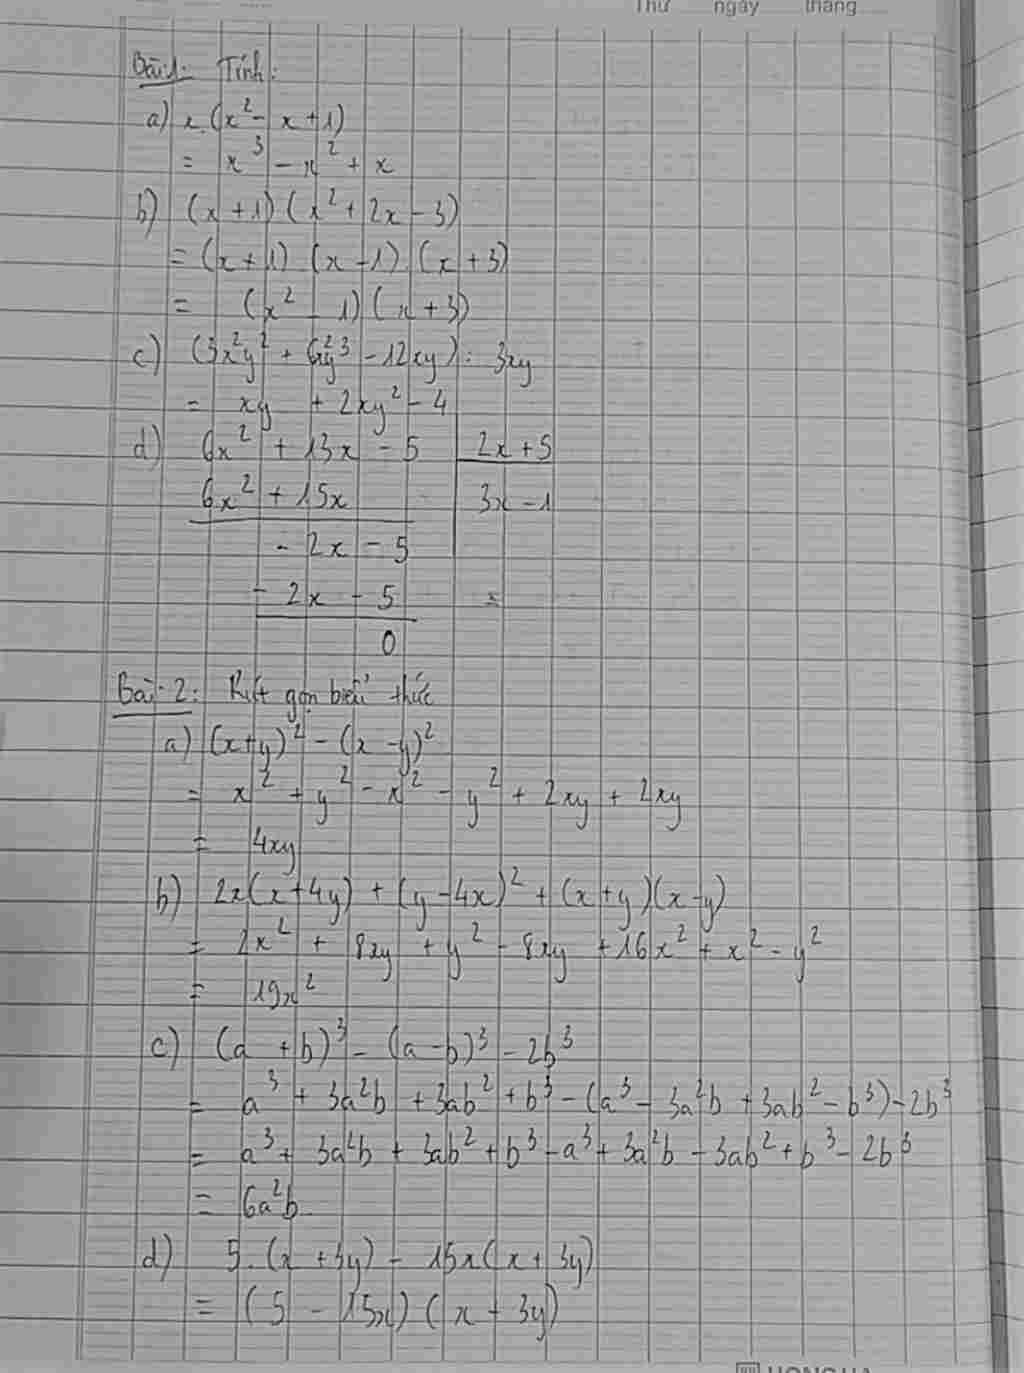 Thứ ngày tháng
Bài 1: Tính:
a) x.(x² - x + 1)
= x³ - x² + x
b) (x + 1) (x² + 2x - 3)
= (x + 1) (x - 1) (x + 3)
= (x² - 1) (x + 3)
c) (3x²y² + 6x²y³ - 12xy) : 3xy
= xy + 2xy² - 4
d) 6x² + 13x - 5 2x + 5
6x² + 15x 3x - 1
- 2x - 5
- 2x - 5 =
0
Bài 2: Rút gọn biểu thức
a) (x+y)² - (x - y)²
= x² + y² - x² - y² + 2xy + 2xy
= 4xy
b) 2x(x + 4y) + (y - 4x)² + (x + y)(x - y)
= 2x² + 8xy + y² - 8xy + 16x² + x² - y²
= 19x²
c) (a + b)³ - (a - b)³ - 2b³
= a³ + 3a²b + 3ab² + b³ - (a³ - 3a²b + 3ab² - b³) - 2b³
= a³ + 3a²b + 3ab² + b³ - a³ + 3a²b - 3ab² + b³ - 2b³
= 6a²b
d) 5.(x + 3y) - 15x(x + 3y)
= (5 - 15x) (x + 3y)
HONG HA